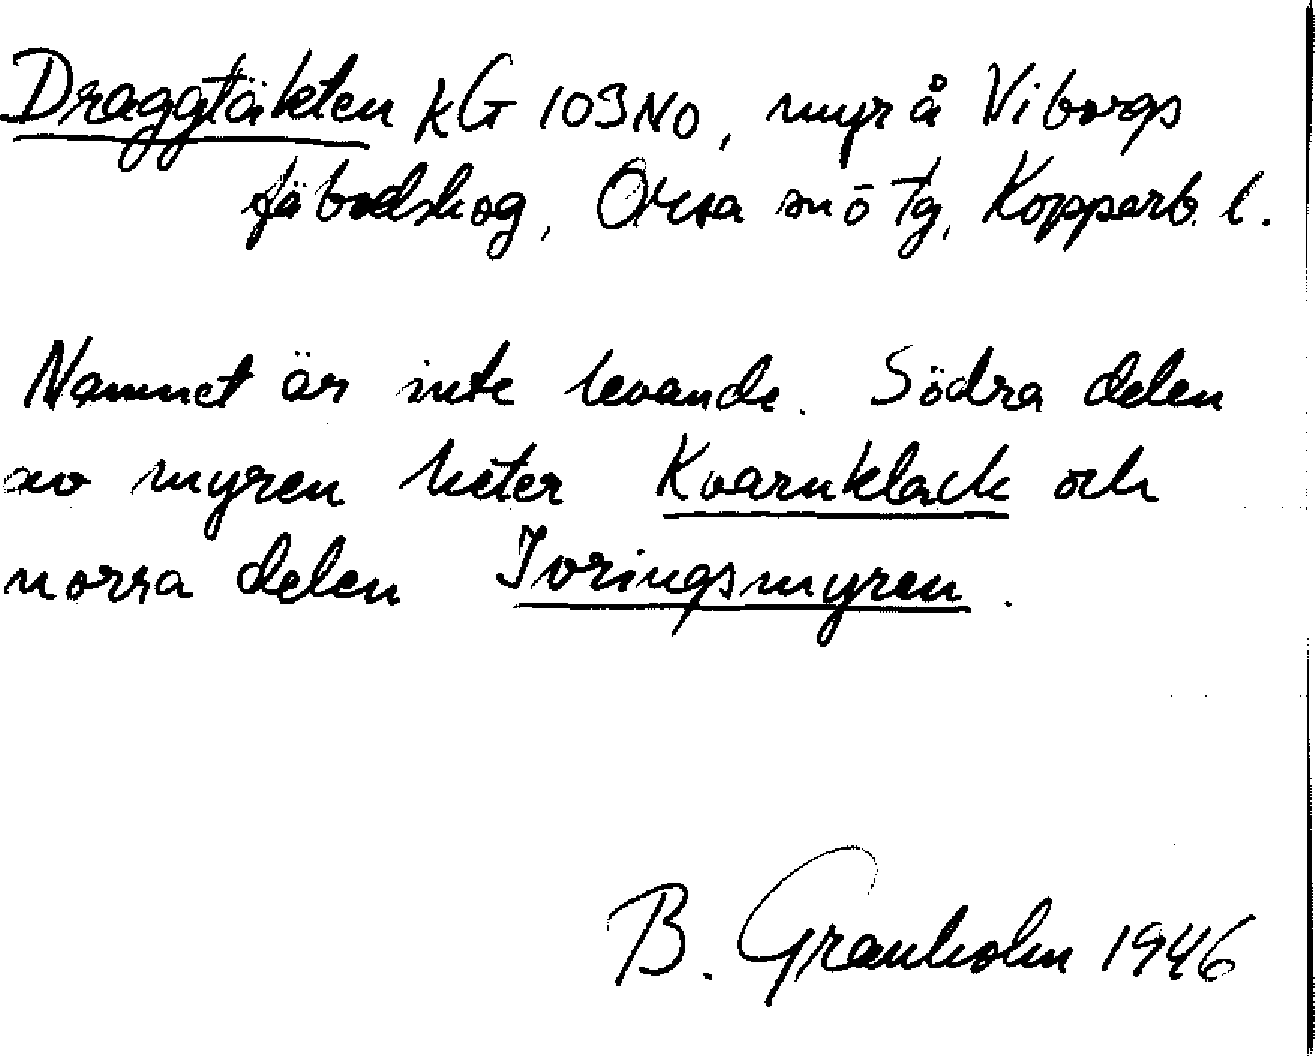 Draggtäkten KG 103 NO, myr å Viborgs
fäbodskog, Orsa snö tg, Kopparb. l.
Namnet är inte levande. Södra delen
av myren heter Kvarnklack och
norra delen Ivringsmyren.
B. Granholm 1946